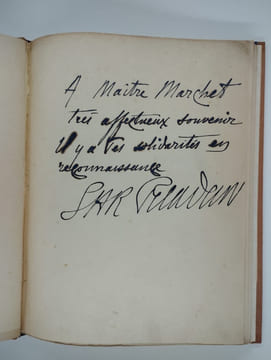 A Maître Marchet
très affectueux souvenir
il y a des solidarités en
reconnaissance
SAR Peladan